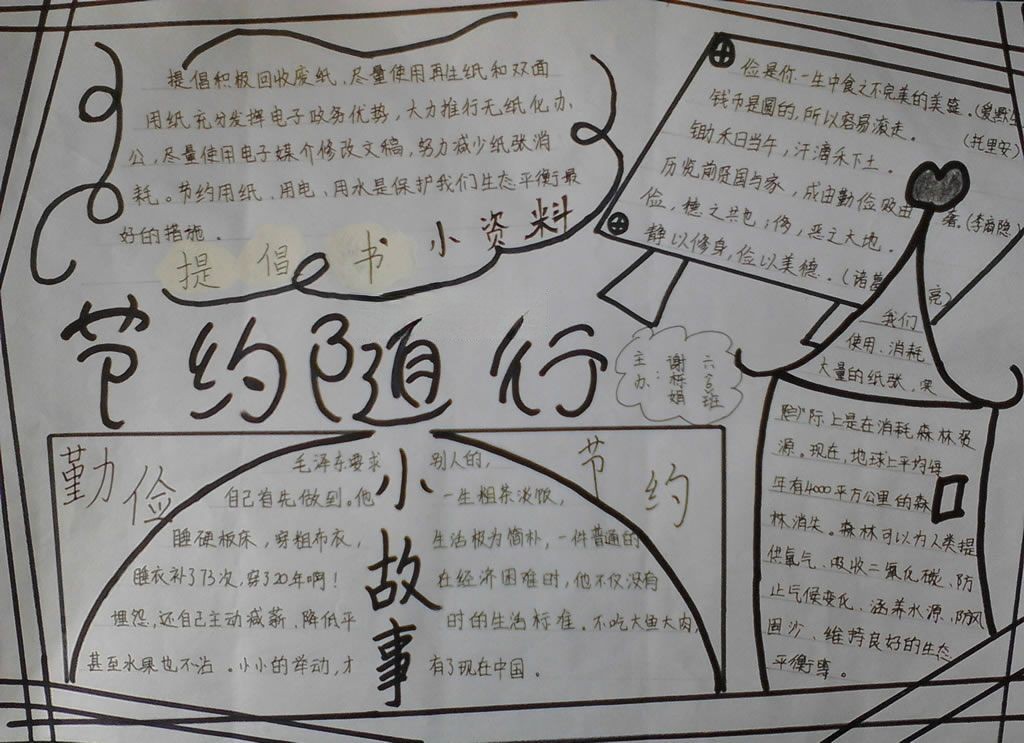 提倡积极回收废纸、尽量使用再生纸和双面
用纸充分发挥电子政务优势，大力推行无纸化办
公，尽量使用电子媒介修改文稿，努力减少纸张消
耗。节约用纸、用电、用水是保护我们生态平衡最
好的措施．
提倡书小资料
俭是你一生中食之不完美的美盛．
钱币是圆的，所以容易滚走．(托里安)
锄禾日当午，汗滴禾下土．
历览前贤国与家，成由勤俭败由
奢．(李商隐)
俭，德之共也；侈，恶之大地．
静以修身，俭以美德．(诸葛
亮)
节约随行
主办：谢
娟
六班
我们
使用、消耗
大量的纸张，实
际上是在消耗森林资
源。现在，地球上平均每
年有4000平方公里的森
林消失。森林可以为人类提
供氧气、吸收二氧化碳、防
止气候变化、涵养水源、防风
固沙、维持良好的生态
平衡等。
勤俭
节约
小故事
毛泽东要求别人的，
自己首先做到。他一生粗茶淡饭，
睡硬板床，穿粗布衣，生活极为简朴，一件普通的
睡衣补了73次，穿了20年啊！在经济困难时，他不仅没有
埋怨，还自己主动减薪、降低平时的生活标准．不吃大鱼大肉，
甚至水果也不沾．小小的举动，才有了现在中国．